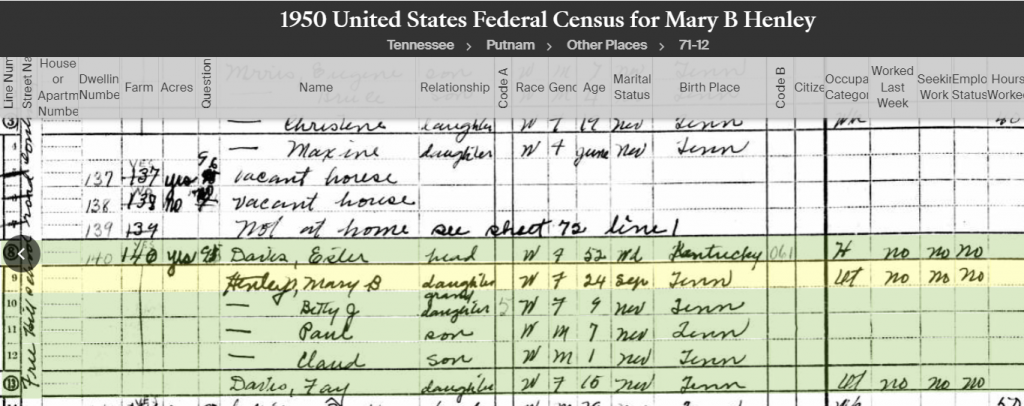 1950 United States Federal Census for Mary B Henley
Tennessee > Putnam > Other Places > 71-12
Line Num Street Na House or Apartm Numbe Dwellin Numbe Farm Acres Question Name Relationship Code A Race Gend Age Marital Status Birth Place Code B Citize Occupa Catego Worked Last Week Seekin Work Emplo Status Hours Worke
Morris, Eugene son W M 7 nev Tenn
Christine daughter W F 19 nev Tenn
— Maxine daughter W F June Nev Tenn
137 137 yes vacant house
138 138 no vacant house
139 139 Not at home see sheet 72 line 1
140 140 yes Davis, Ester head W F 52 Wd Kentucky 061 H no no no
9 Henley, Mary B daughter W F 24 Sep Tenn Ot no no no
10 — Betty J grand daughter 5 W F 9 nev Tenn
11 — Paul son W M 7 nev Tenn
12 — Claud son W M 1 nev Tenn
13 Davis, Fay daughter W F 15 nev Tenn Ot no no no